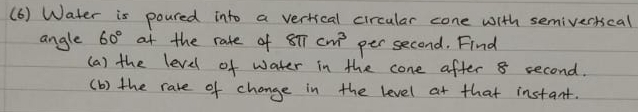 (6) Water is poured into a vertical circular cone with semivertical
angle 60° at the rate of 8π cm³ per second. Find
(a) the level of water in the cone after 8 second.
(b) the rate of change in the level at that instant.